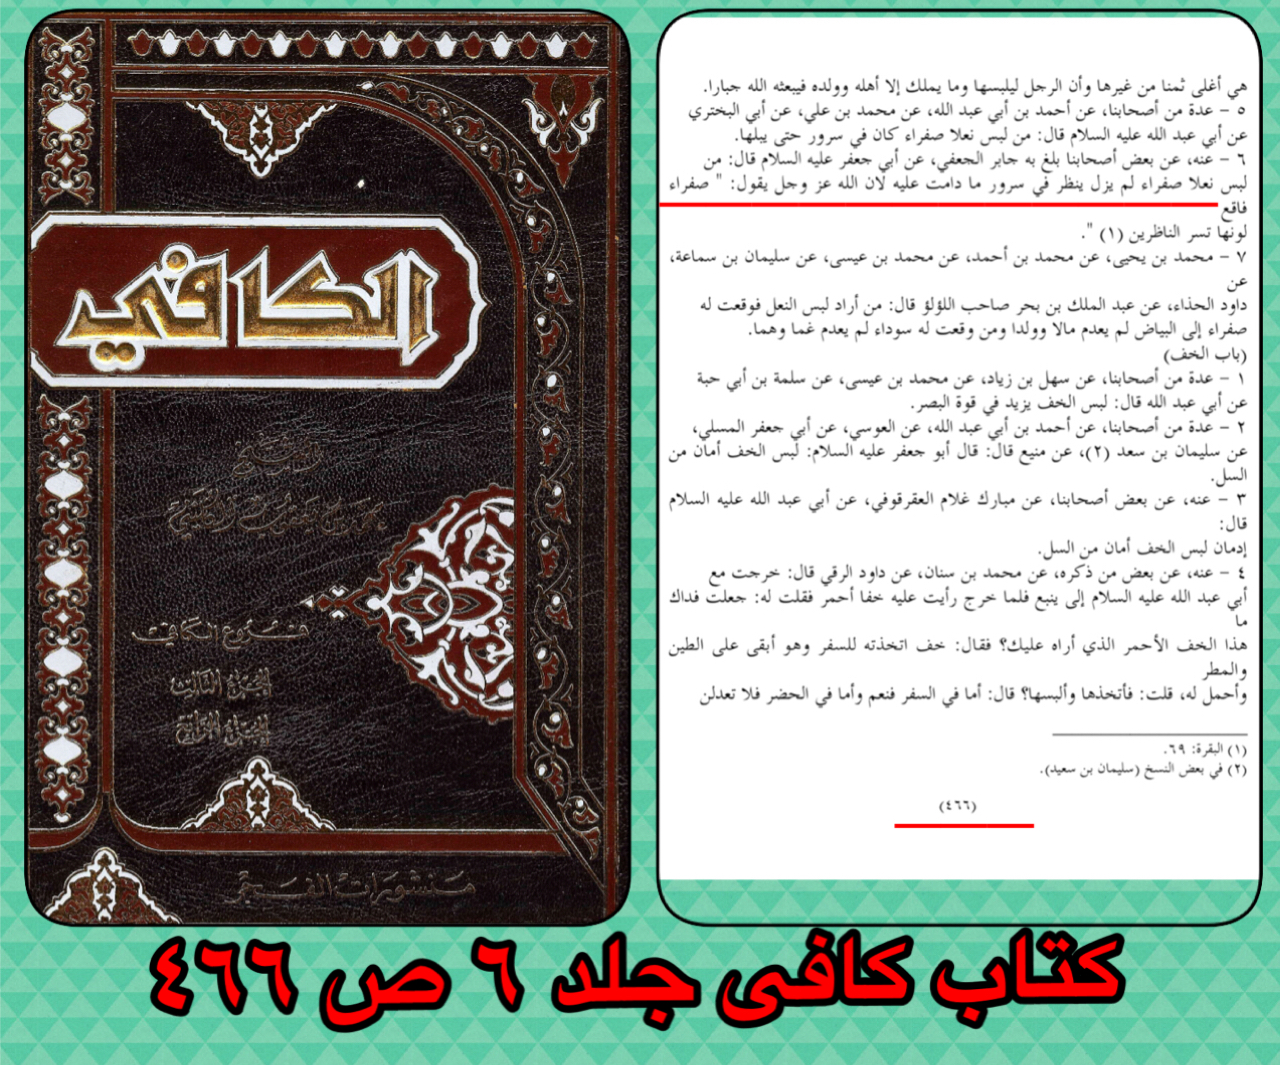 الكافي
فروع الكافي
الجزء الثالث
الجزء الرابع
منشورات الفجر
هي أغلى ثمنا من غيرها وأن الرجل ليلبسها وما يملك إلا أهله وولده فيبعثه الله جبارا.
٥ - عدة من أصحابنا، عن أحمد بن أبي عبد الله، عن محمد بن علي، عن أبي البختري
عن أبي عبد الله عليه السلام قال: من لبس نعلا صفراء كان في سرور حتى يبلها.
٦ - عنه، عن بعض أصحابنا بلغ به جابر الجعفي، عن أبي جعفر عليه السلام قال: من
لبس نعلا صفراء لم يزل ينظر في سرور ما دامت عليه لان الله عز وجل يقول: " صفراء
فاقع
لونها تسر الناظرين (١) ".
٧ - محمد بن يحيى، عن محمد بن أحمد، عن محمد بن عيسى، عن سليمان بن سماعة،
عن
داود الحذاء، عن عبد الملك بن بحر صاحب اللؤلؤ قال: من أراد لبس النعل فوقعت له
صفراء إلى البياض لم يعدم مالا وولدا ومن وقعت له سوداء لم يعدم غما وهما.
(باب الخف)
١ - عدة من أصحابنا، عن سهل بن زياد، عن محمد بن عيسى، عن سلمة بن أبي حبة
عن أبي عبد الله قال: لبس الخف يزيد في قوة البصر.
٢ - عدة من أصحابنا، عن أحمد بن أبي عبد الله، عن العوسي، عن أبي جعفر المسلي،
عن سليمان بن سعد (٢)، عن منيع قال: قال أبو جعفر عليه السلام: لبس الخف أمان من
السل.
٣ - عنه، عن بعض أصحابنا، عن مبارك غلام العقرقوفي، عن أبي عبد الله عليه السلام
قال:
إدمان لبس الخف أمان من السل.
٤ - عنه، عن بعض من ذكره، عن محمد بن سنان، عن داود الرقي قال: خرجت مع
أبي عبد الله عليه السلام إلى ينبع فلما خرج رأيت عليه خفا أحمر فقلت له: جعلت فداك
ما
هذا الخف الأحمر الذي أراه عليك؟ فقال: خف اتخذته للسفر وهو أبقى على الطين
والمطر
وأحمل له، قلت: فأتخذها وألبسها؟ قال: أما في السفر فنعم وأما في الحضر فلا تعدلن
(١) البقرة: ٦٩.
(٢) في بعض النسخ (سليمان بن سعيد).
(٤٦٦)
كتاب كافى جلد ٦ ص ٤٦٦